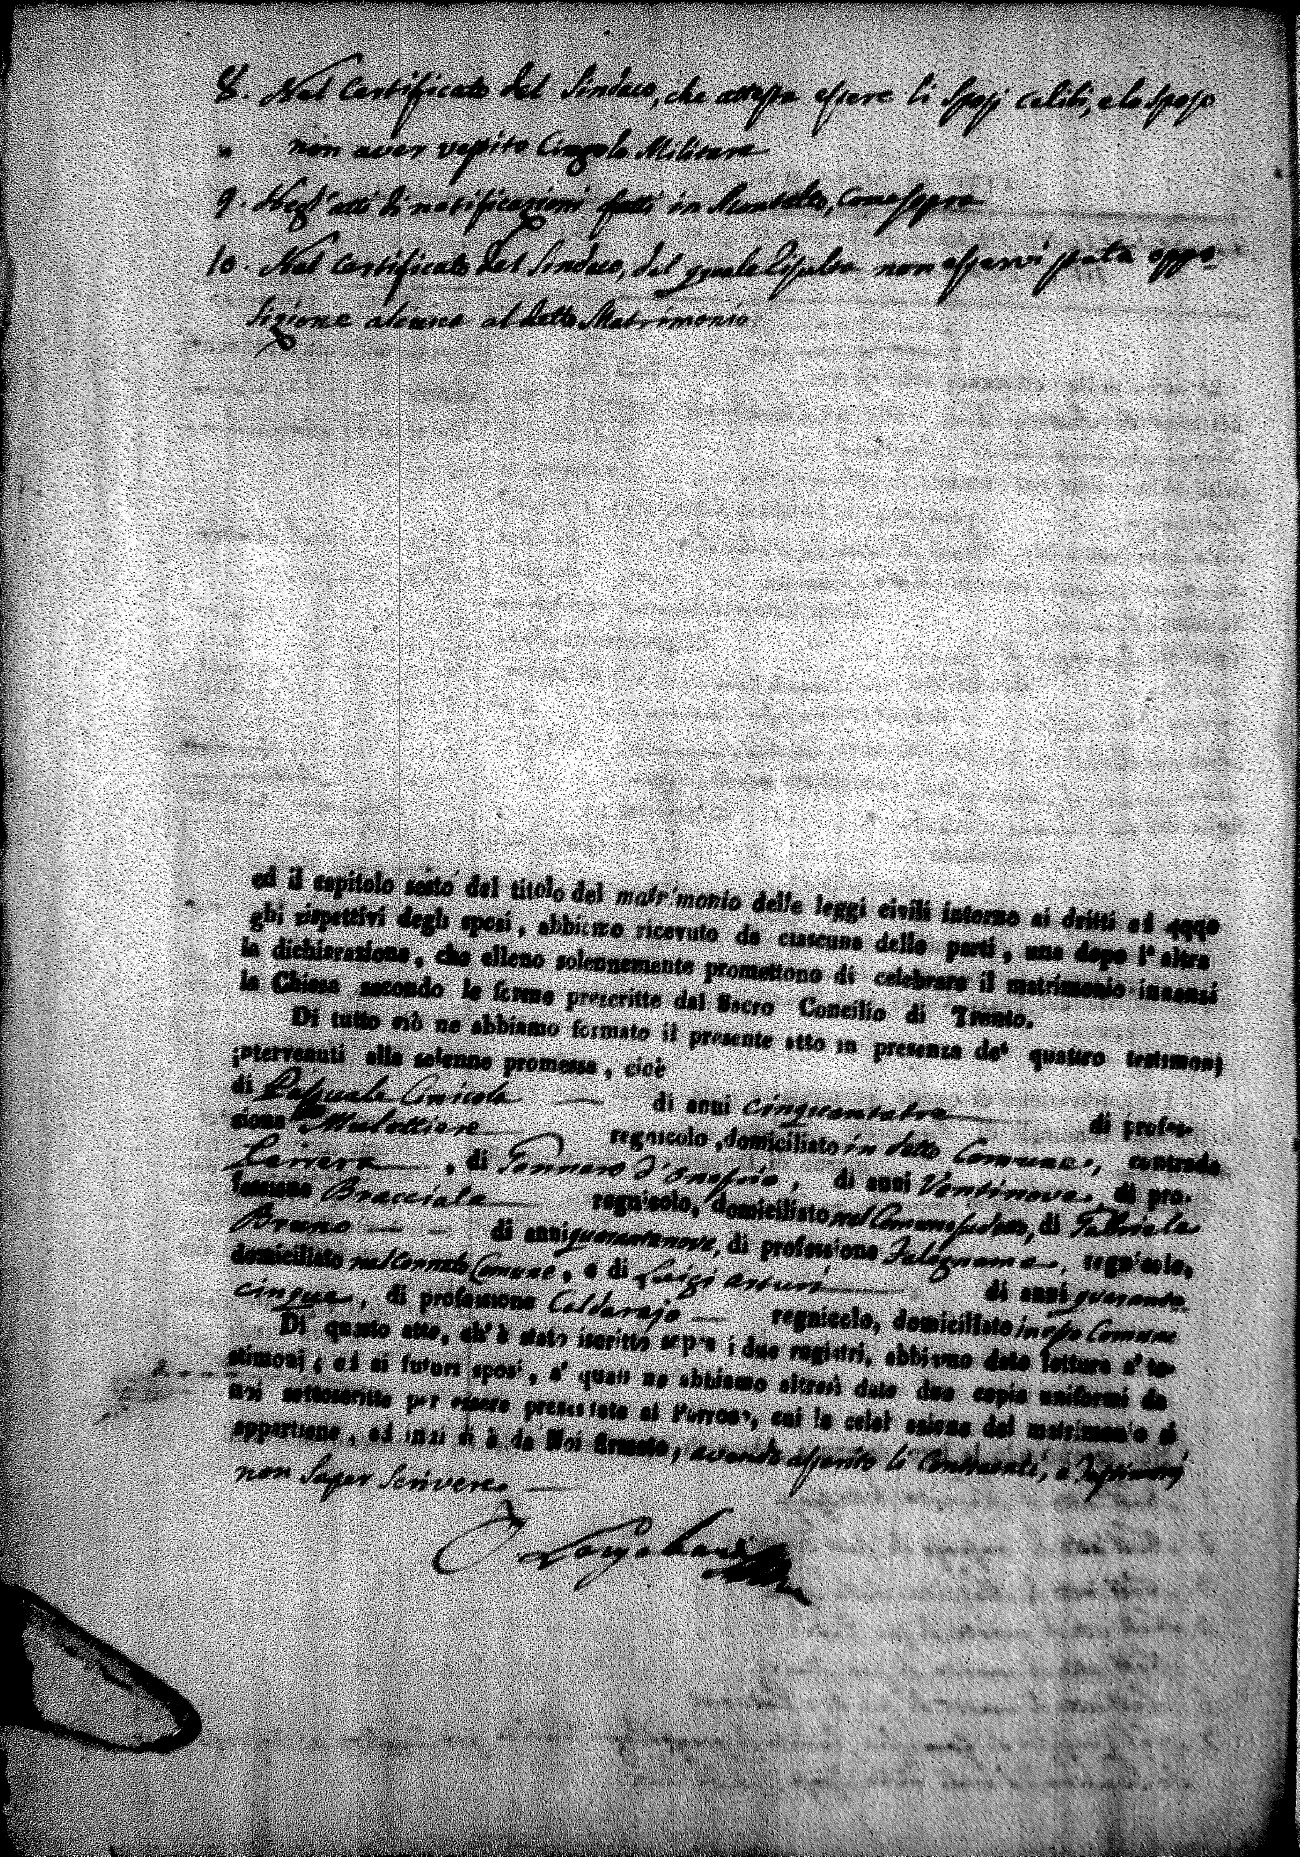 8. Nel Certificato del Sindaco, che attesta essere li Sposi celibi, e lo sposo
" non aver vestito Cingolo Militare
9. Negl'atti di notificazioni fatti in Montalto, come sopra
10. Nel Certificato del Sindaco, dal quale risulta non esservi stata oppo-
sizione alcuna al detto Matrimonio
ed il capitolo sesto del titolo del matrimonio delle leggi civili intorno ai dritti ed obbli-
ghi rispettivi degli sposi, abbiamo ricevuto da ciascuna delle parti, una dopo l'altra
la dichiarazione, che elleno solennemente promettono di celebrare il matrimonio innanzi
la Chiesa secondo le forme prescritte dal Sacro Concilio di Trento.
Di tutto ciò ne abbiamo formato il presente atto in presenza de' quattro testimonj
intervenuti alla solenne promessa, cioè
di Pasquale Cinicola di anni cinquantatre di profes-
sione Mulattiere regnicolo, domiciliato in detto Comune, contrada
, di Gennaro D'Onofrio, di anni Ventinove, di pro-
fessione Bracciale regnicolo, domiciliato nel Comune sudetto, di Gabriele
Bruno di anni quarantanove, di professione Falegname, regnicolo,
domiciliato nel cennato Comune, e di Luigi di anni quaranta
cinque, di professione Caldarajo regnicolo, domiciliato in esso Comune
Di questo atto, ch'è stato iscritto sopra i due registri, abbiamo dato lettura a' te-
stimonj, ed ai futuri sposi, a' quali ne abbiamo altresì dato due copie uniformi da
noi sottoscritte per essere presentate al Parroco, cui la celebrazione del matrimonio si
appartiene, ed indi si è da Noi firmato, avendo asserito li Contraenti, e Testimonj
non saper Scrivere